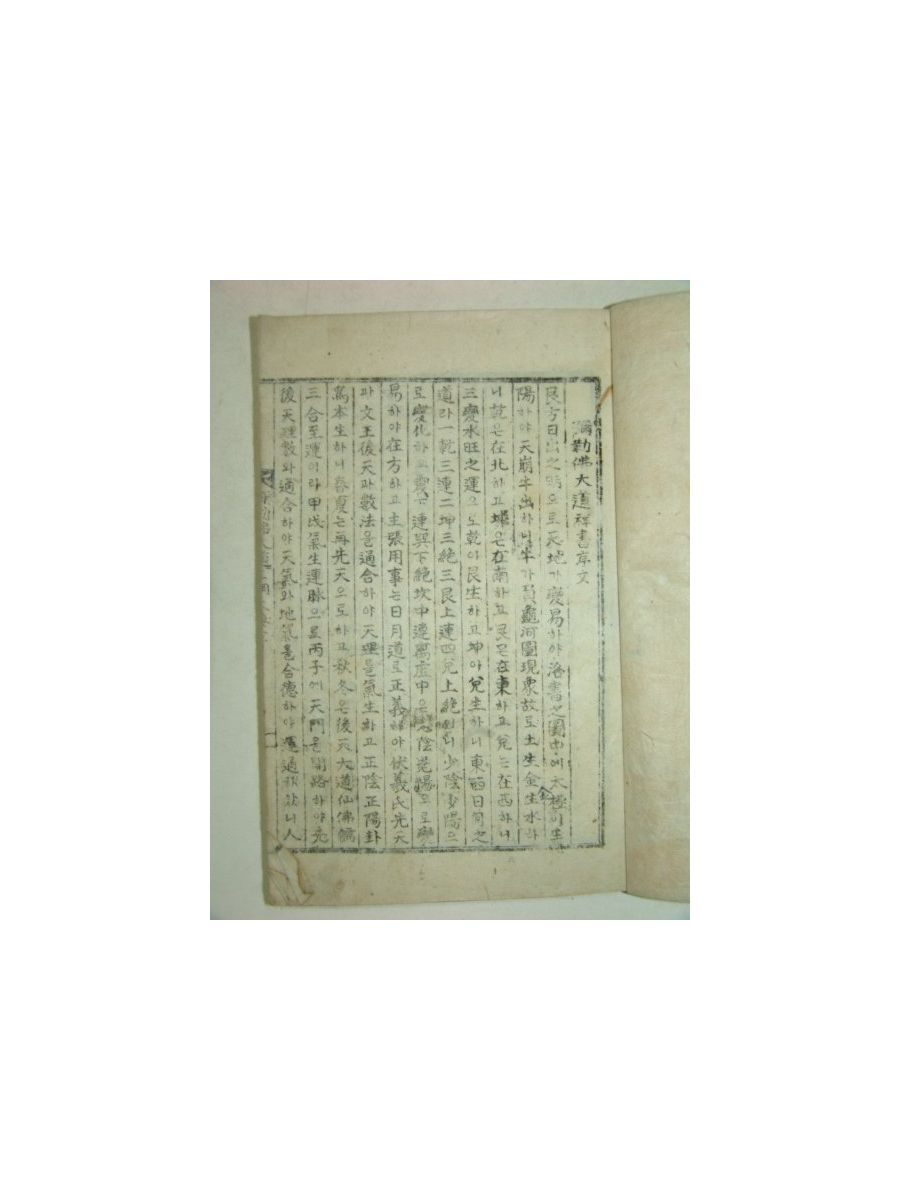 彌勒佛大道禪書序文
艮方日出之時으로 天地가 變易하야 洛書之圖中에 太極이 生
陽하야 天崩牛出하니 牛가 負龜河圖現象故로 土生金生水하
니 乾은 在北하고 坤은 在南하고 艮은 在東하고 兌는 在西하니
三變水旺之運으로 乾이 艮生하고 坤이 兌生하니 東西日月之
道라 一乾三連二坤三絶三艮上連四兌上絶이니 少陰少陽으
로 變化하고 巽은 連巽下絶坎中連离虛中으로 陰 陽으로 變
易하야 在方하고 主張用事는 日月道로 正義하야 伏羲氏先天
과 文王後天과 數法을 適合하야 天理를 氣生하고 正陰正陽卦
爲本生하니 春夏는 再先天으로하고 秋冬은 後天大道仙佛儒
三合至運이라 甲戌氣生運脉으로 丙子에 天門을 開路하야 先
後天理數와 適合하야 天氣와 地氣를 合德하야 運通 니 人